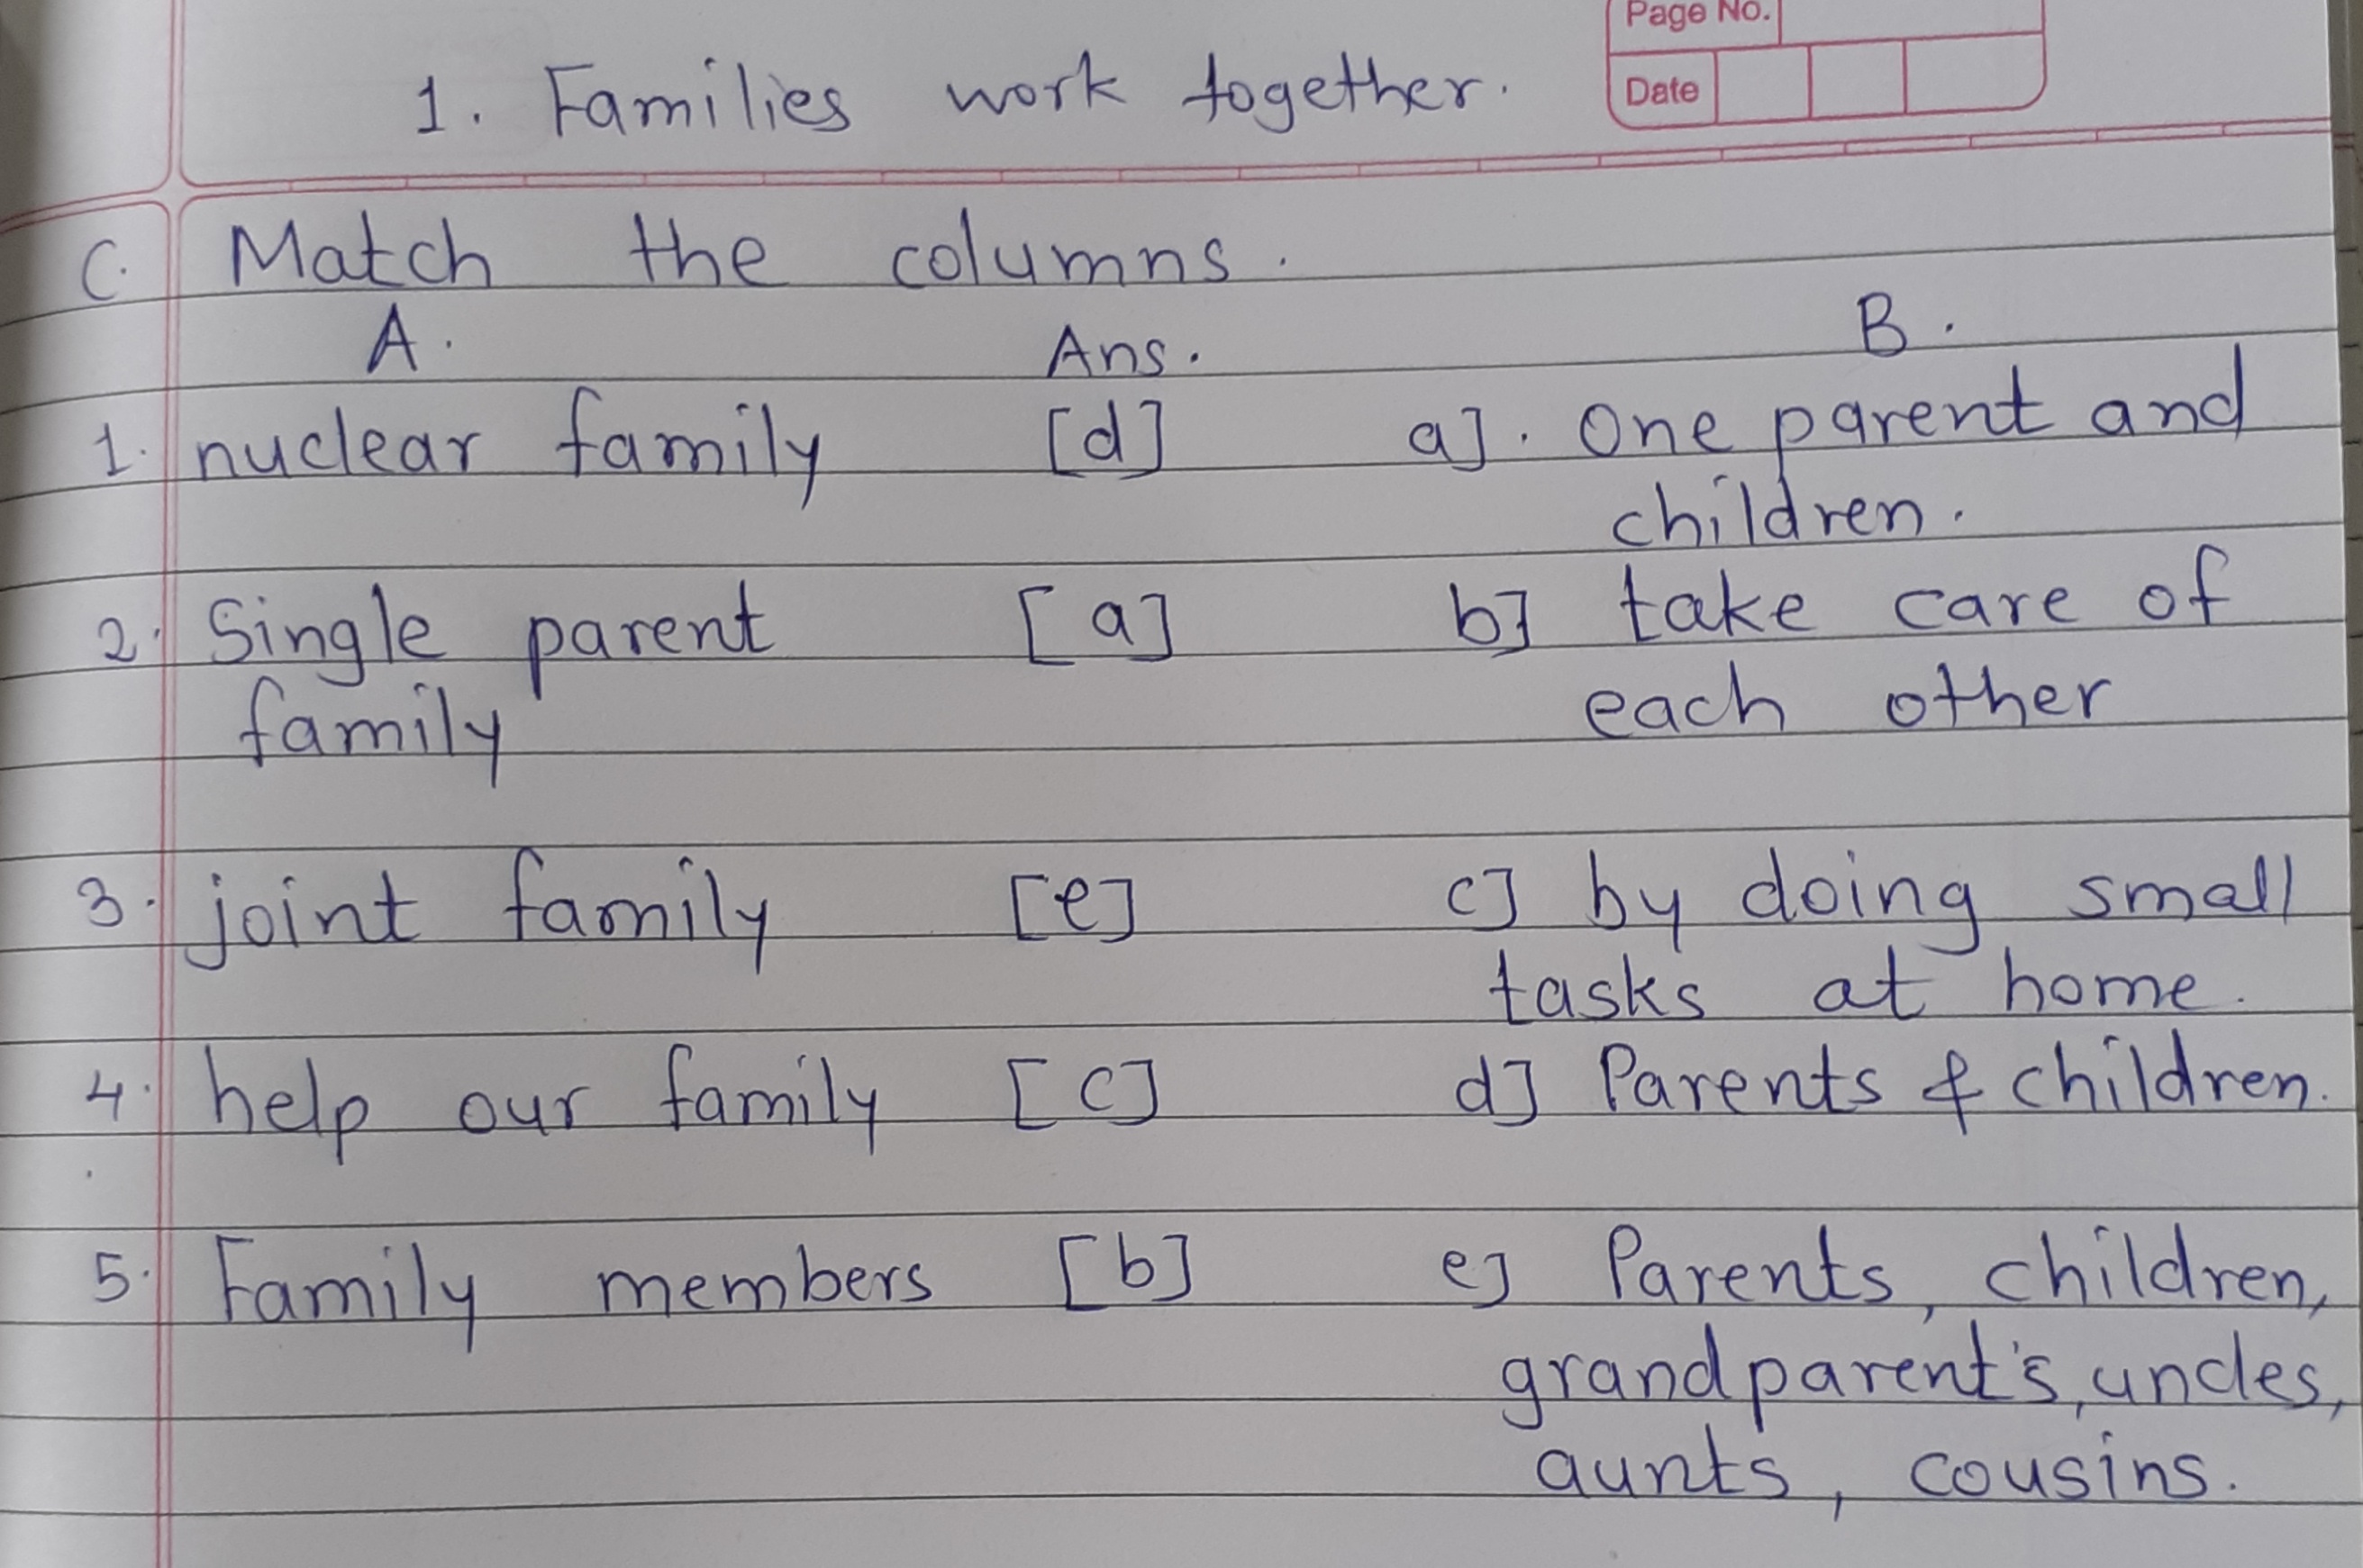 Page No.
Date
1. Families work together.
C. Match the columns.
A. Ans. B.
1. nuclear family [d] a]. One parent and
children.
2. Single parent [a] b] take care of
family each other
3. joint family [e] c] by doing small
tasks at home.
4. help our family [c] d] Parents & children.
5. Family members [b] e] Parents, children,
grandparent's, uncles,
aunts, cousins.